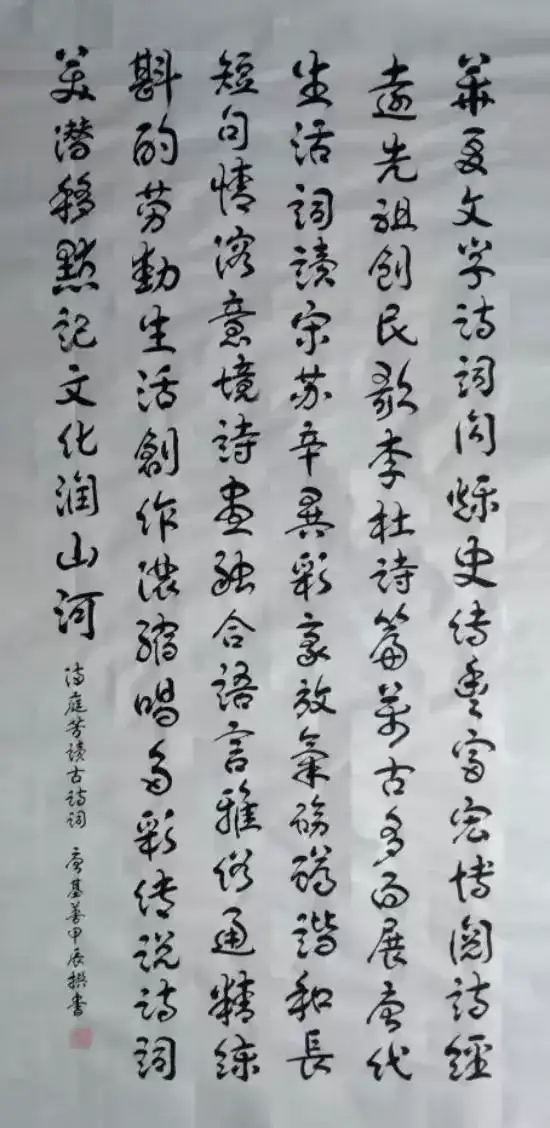 華夏文字詩词闪爍史传豊富宏博阅詩經
遠先祖创民歌李杜詩篇萬古多面展唐代
生活词讀宋苏辛異彩豪放氣磅礴諧和長
短句情溶意境詩画融合語言雅俗通精练
斟酌劳動生活創作濃缩唱多彩传说詩词
美潜移默記文化润山河
满庭芳读古詩词 唐基善甲辰撰書